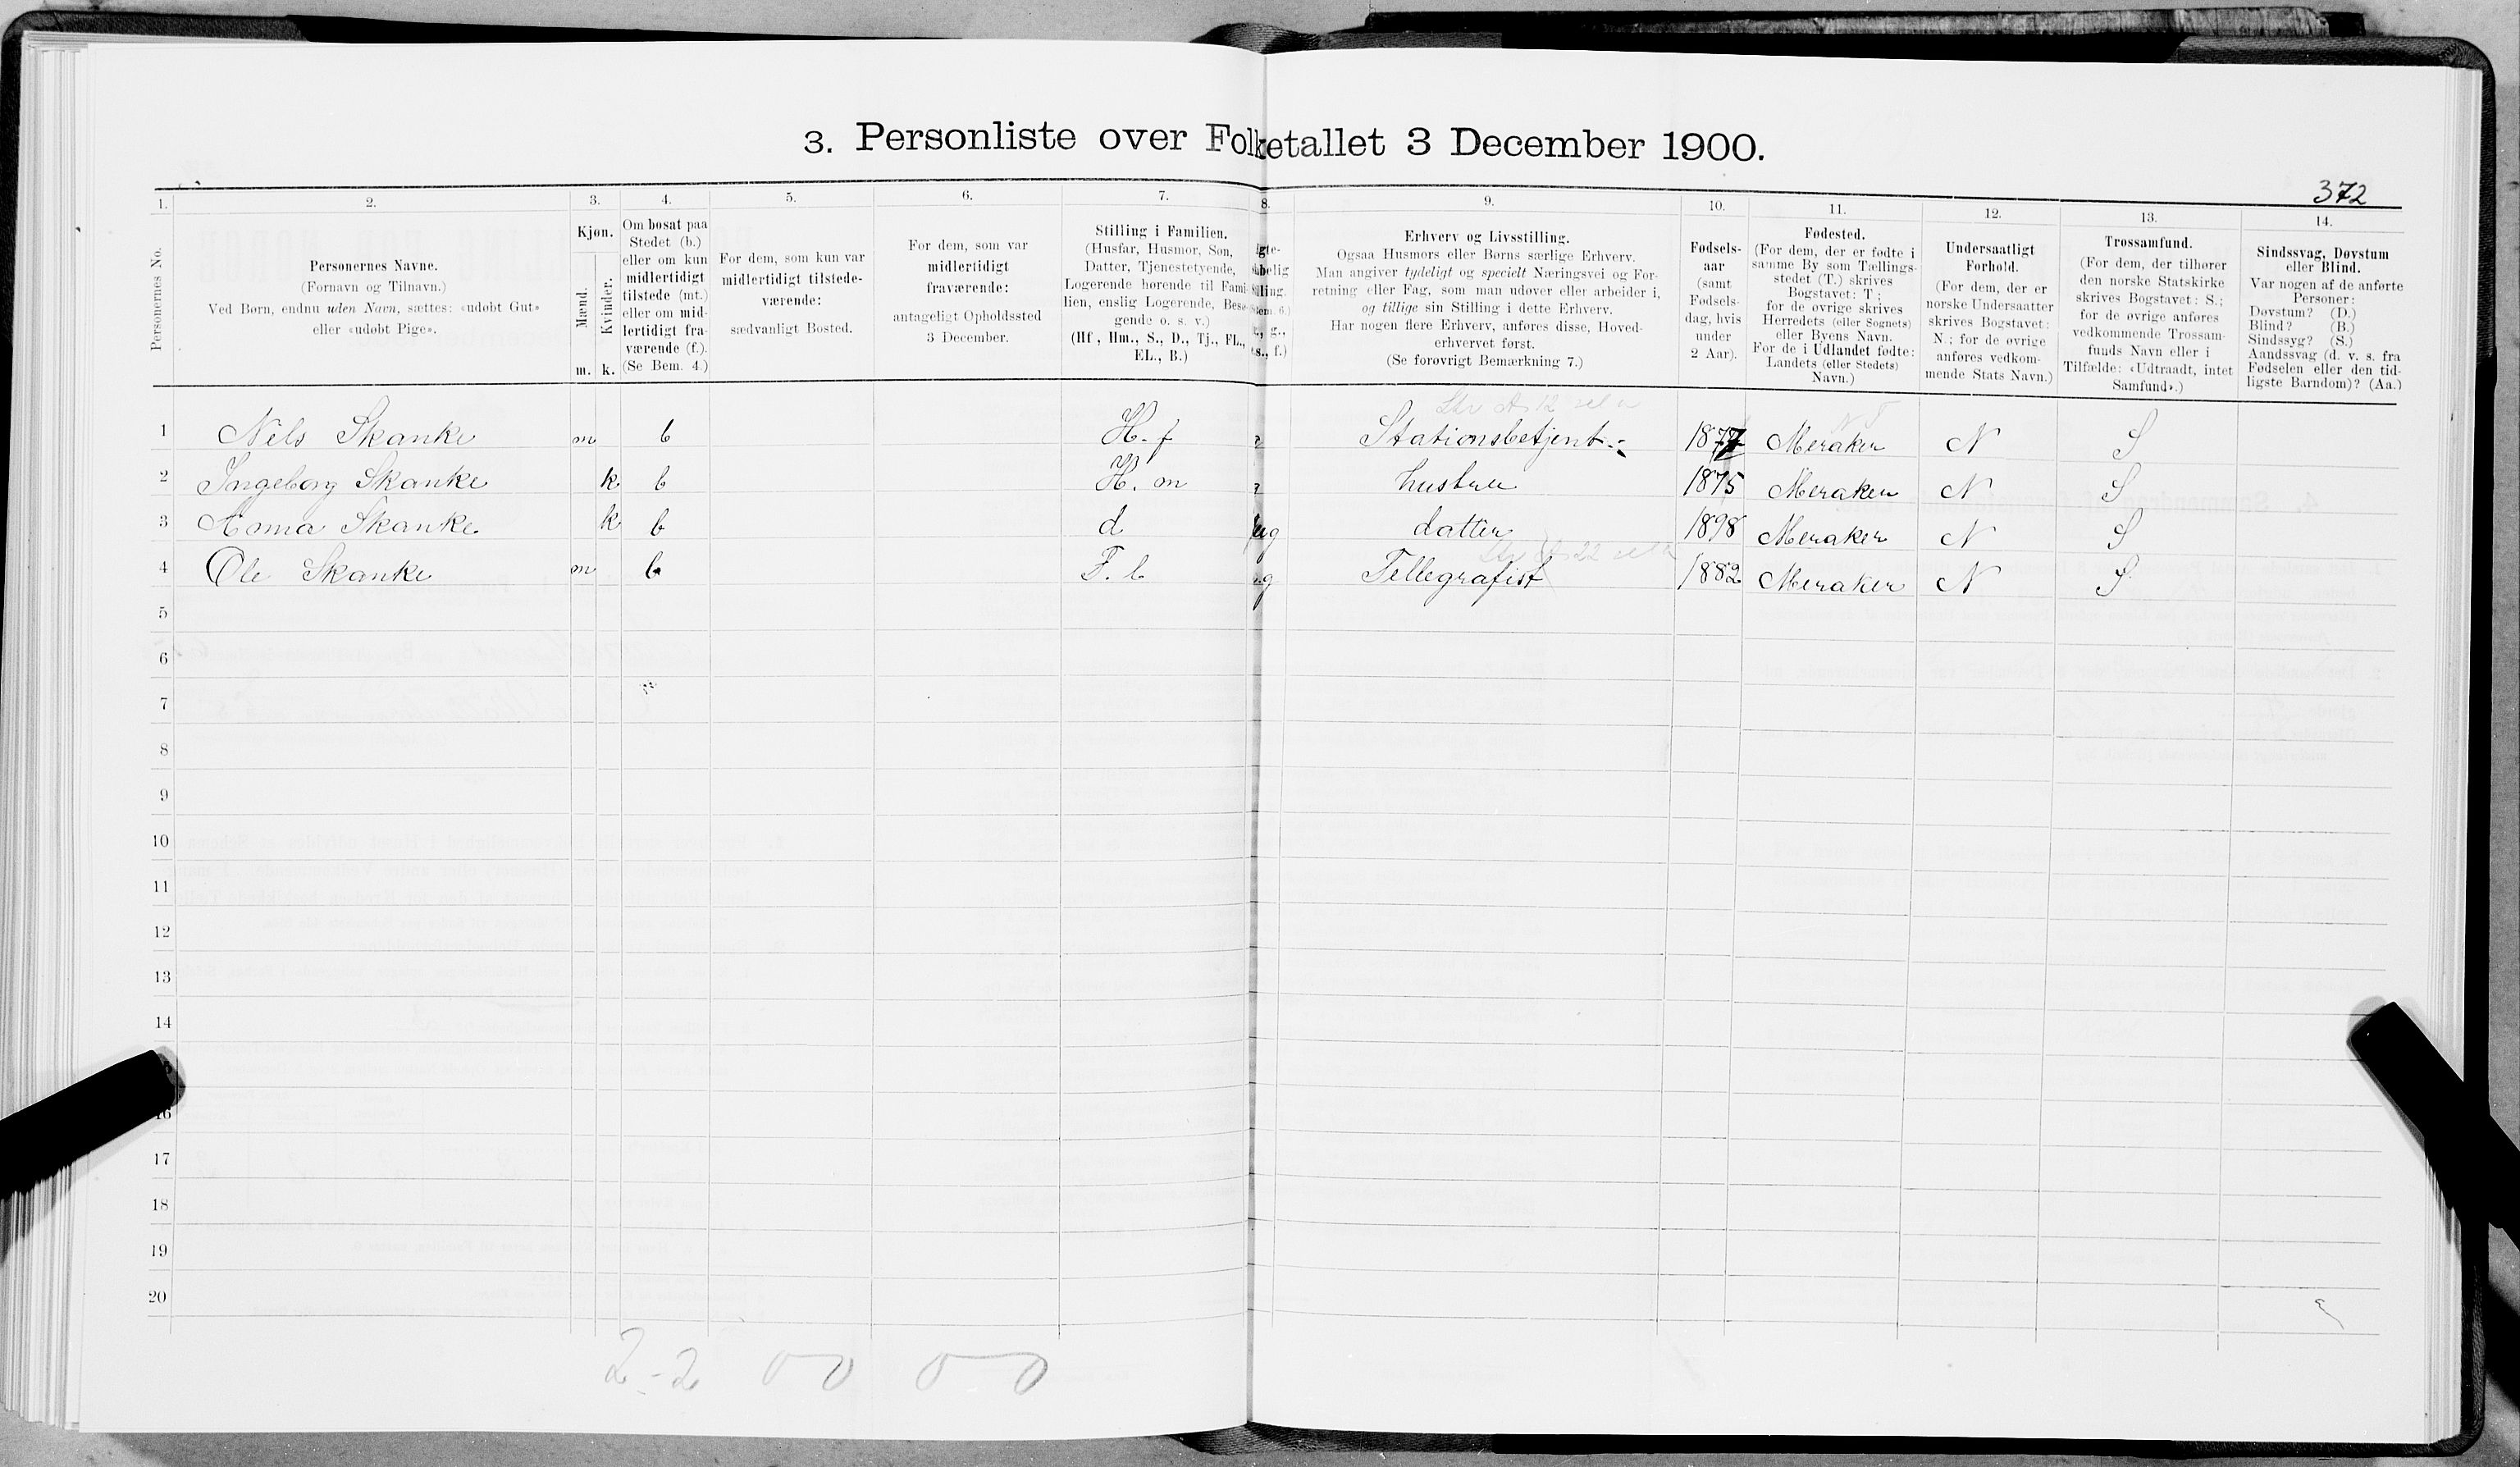 3. Personliste over Folketallet 3 December 1900.
372
1. 2. 3. 4. 5. 6. 7. 8. 9. 10. 11. 12. 13. 14.
Personernes No.
Personernes Navne.
(Fornavn og Tilnavn.)
Ved Børn, endnu uden Navn, sættes: «udøbt Gut»
eller «udøbt Pige».
Kjøn.
Mænd.
Kvinder.
m. k.
Om bosat paa
Stedet (b.)
eller om kun
midlertidigt
tilstede (mt.)
eller om mid-
lertidigt fra-
værende (f.).
(Se Bem. 4.)
For dem, som kun var
midlertidigt tilstede-
værende:
sædvanligt Bosted.
For dem, som var
midlertidigt
fraværende:
antageligt Opholdssted
3 December.
Stilling i Familien.
(Husfar, Husmor, Søn,
Datter, Tjenestetyende,
Logerende hørende til Fami-
lien, enslig Logerende, Besø-
gende o. s. v.)
(Hf , Hm., S., D., Tj., FL.,
EL., B.)
Erhverv og Livsstilling.
Ogsaa Husmors eller Børns særlige Erhverv.
Man angiver tydeligt og specielt Næringsvei og For-
retning eller Fag, som man udøver eller arbeider i,
og tillige sin Stilling i dette Erhverv.
Har nogen flere Erhverv, anføres disse, Hoved-
erhvervet først.
(Se forøvrigt Bemærkning 7.)
Fødsels-
aar
(samt
Fødsels-
dag, hvis
under
2 Aar).
Fødested.
(For dem, der er fødte i
samme By som Tællings-
stedet (T.) skrives
Bogstavet: T ;
for de øvrige skrives
Herredets (eller Sognets)
eller Byens Navn.
For de i Udlandet fødte:
Landets (eller Stedets)
Navn.)
Undersaatligt
Forhold.
(For dem, der er
norske Undersaatter
skrives Bogstavet:
N.; for de øvrige
anføres vedkom-
mende Stats Navn.)
Trossamfund.
(For dem, der tilhører
den norske Statskirke
skrives Bogstavet: S.;
for de øvrige anføres
vedkommende Trossam-
funds Navn eller i
Tilfælde: «Udtraadt, intet
Samfund».)
Sindssvag, Døvstum
eller Blind.
Var nogen af de anførte
Personer:
Døvstum? (D.)
Blind? (B.)
Sindssyg? (S.)
Aandssvag (d. v. s. fra
Fødselen eller den tid-
ligste Barndom)? (Aa.)
1 Nels Skanke m b H. f Stationsbetjent 1877 Meraker N S
2 Ingeborg Skanke k b H. m hustru 1875 Meraker N S
3 Anna Skanke k b d ug datter 1898 Meraker N S
4 Ole Skanke m b F. l ug Tellegrafist 1882 Meraker N S
5
6
7
8
9
10
11
12
13
14
16
17
18
19
20
2-2 0 0 0-0